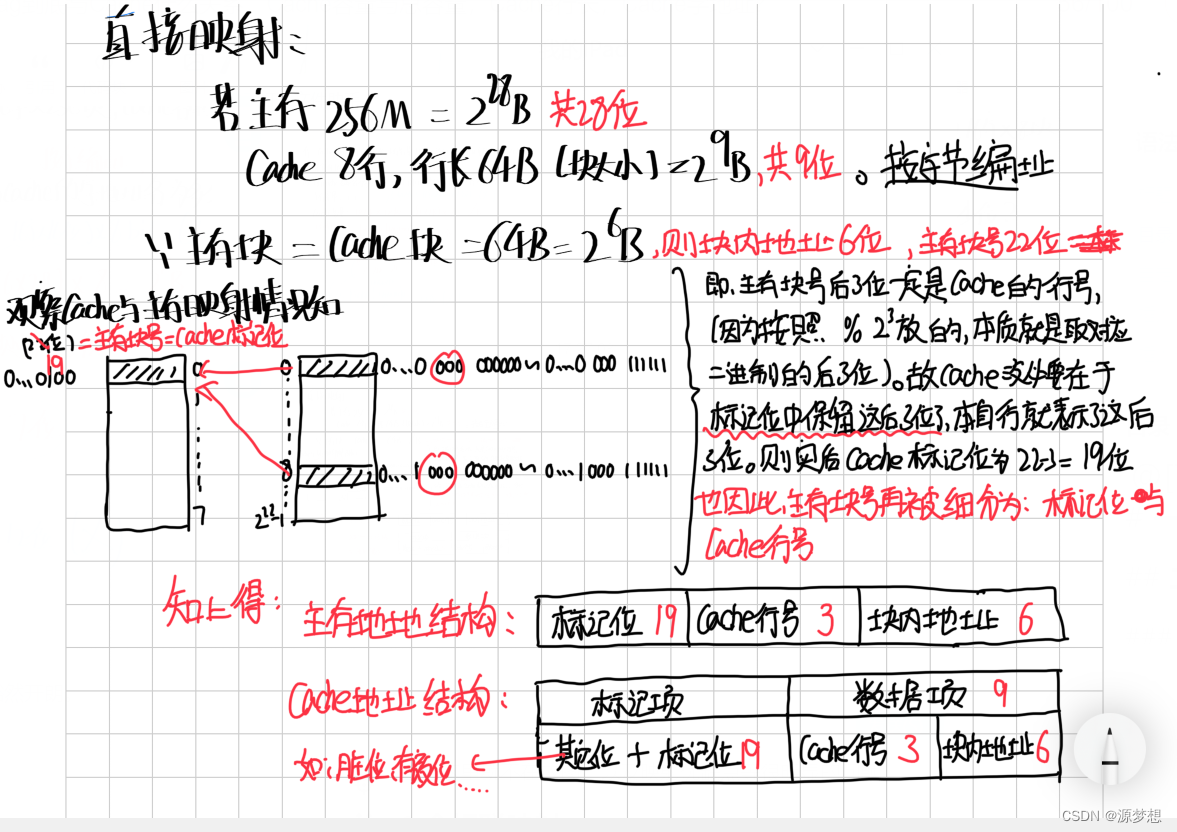 直接映射:
若主存 256M = 2^28 B 共28位
Cache 8行, 行长64B [块大小] = 2^9 B, 共9位。按字节编址
∵ 主存块 = Cache块 = 64B = 2^6 B, 则块内地址6位, 主存块号22位
观察Cache与主存映射情况知
(22位) = 主存块号 = Cache标记位
19
0...0100
0
0
0...0 000 000000 ~ 0...0 000 111111
8
0...1 000 000000 ~ 0...1 000 11111
7
2^22-1
即, 主存块号后3位一定是Cache的行号,
(因为按照 % 2^3 放的, 本质就是取对应
二进制的后3位)。故Cache 在于
标记位中保留这后3位, 本身行就表示了这后
3位。则实后Cache标记位为22-3 = 19位
也因此, 主存块号再被细分为: 标记位与
Cache行号
知上得:
主存地址结构:
标记位 19 Cache行号 3 块内地址 6
Cache地址结构:
标记项 数据项 9
其它位 + 标记位19 Cache行号 3 块内地址6
如: 脏位, 有效位......
CSDN @源梦想